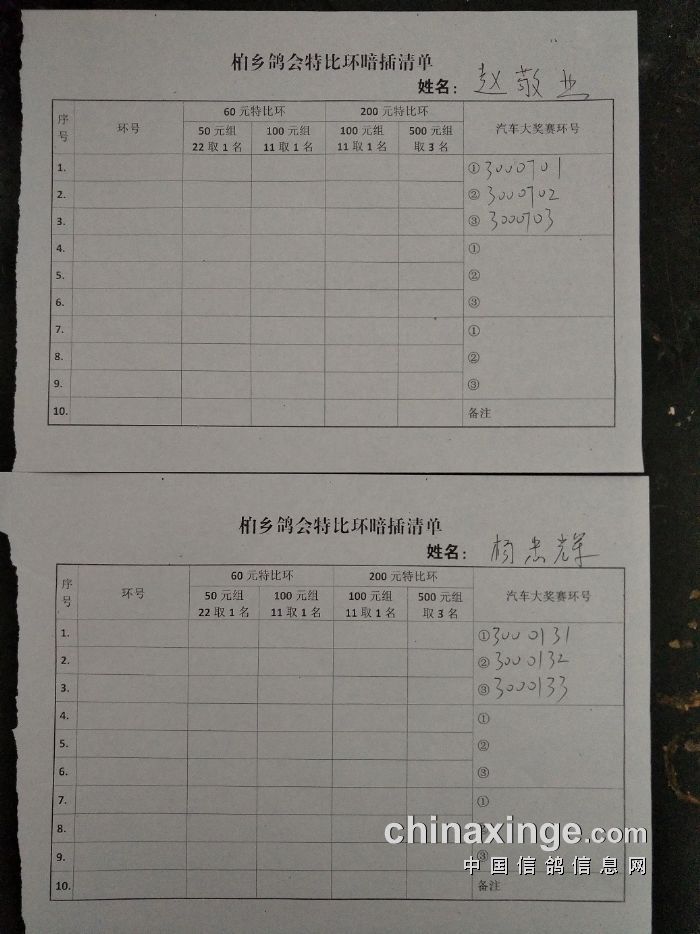 柏乡鸽会特比环暗插清单
姓名： 赵敬业
序号 环号 60元特比环 200元特比环 汽车大奖赛环号
50元组 100元组 100元组 500元组
22取1名 11取1名 11取1名 取3名
1. ①3000701
2. ②3000702
3. ③3000703
4. ①
5. ②
6. ③
7. ①
8. ②
9. ③
10. 备注
柏乡鸽会特比环暗插清单
姓名： 杨忠辉
序号 环号 60元特比环 200元特比环 汽车大奖赛环号
50元组 100元组 100元组 500元组
22取1名 11取1名 11取1名 取3名
1. ①3000131
2. ②3000132
3. ③3000133
4. ①
5. ②
6. ③
7. ①
8. ②
chinaxinge.com
9. ③
中国信鸽信息网
10. 备注